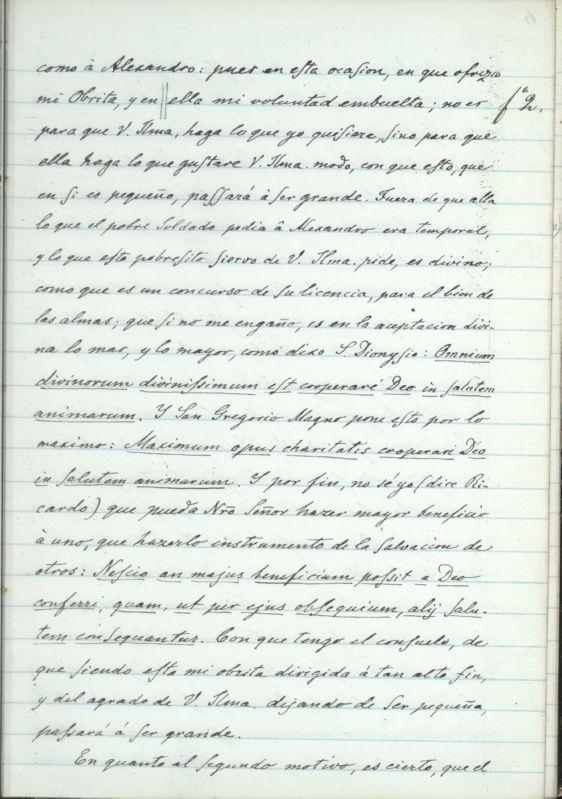 como à Alexandro: pues en esta ocasion, en que ofrezco
mi Obrita, y en ella mi voluntad embuelta; no es
fº 2.
para que V. Ilma, haga lo que yo quisiere, sino para que
ella haga lo que gustare V. Ilma. modo, con que esto, que
en si es pequeño, passará à ser grande. Fuera de que alla
lo que el pobre Soldado pedia â Alexandro era temporal,
y lo que este pobresito siervo de V. Ilma. pide, es divino;
como que es un concurso de su licencia, para el bien de
las almas; que si no me engaño, es en la aceptacion divi-
na lo mas, y lo mayor, como dixo S Dionysio: Omnium
divinorum divinissimum est cooperaré Deo in salutem
animarum. Y San Gregorio Magno pone esto por lo
maximo: Maximum opus charitatis cooperari Deo
in salutem animarum. Y por fin, no sé yo (dice Ri-
cardo) que pueda Nrõ Señor hazer mayor beneficio
à uno, que hazerlo instrumento de la salvacion de
otros: Nescio an majus beneficium possit a Deo
conferri, quam, ut per ejus obsequium, alij salu-
tem consequantur. Con que tengo el consuelo, de
que siendo esta mi obrita dirigida á tan alto fin,
y del agrado de V. Ilma. dejando de ser pequeña,
passará á ser grande.
En quanto al segundo motivo, es cierto, que el